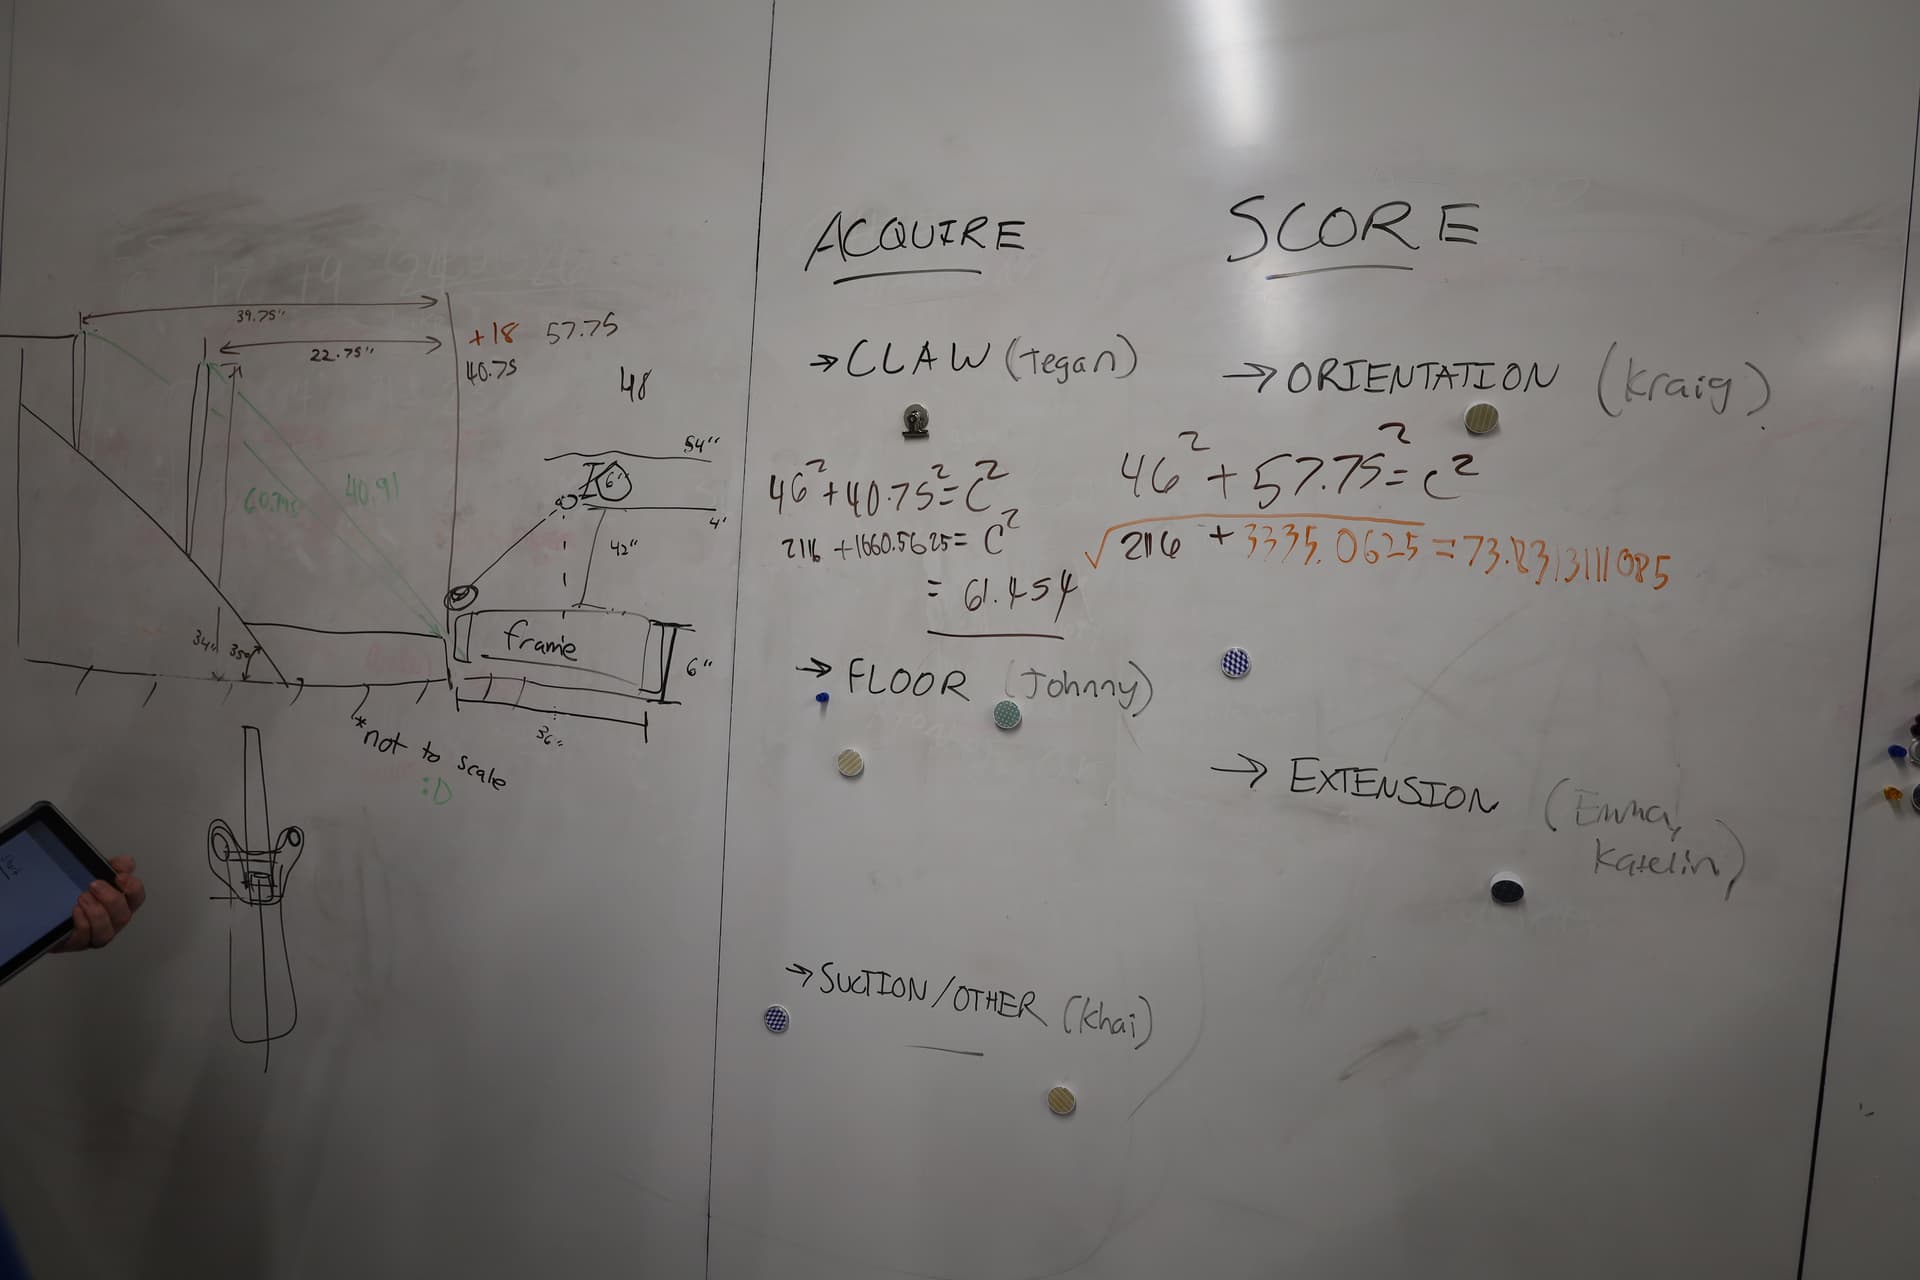 39.75"
22.75"
+18 57.75
40.75
48
54"
6"
4'
42"
60.
40.91
34" 35°
frame
6"
36"
*not to scale
:D
ACQUIRE
→ CLAW (Tegan)
46² + 40.75² = C²
2116 + 1660.5625 = C²
= 61.454
→ FLOOR (Johnny)
→ SUCTION/OTHER (Khai)
SCORE
→ ORIENTATION (Kraig)
46² + 57.75² = C²
√2116 + 3335.0625 = 73.8313111085
→ EXTENSION (Emma,
Katelin)